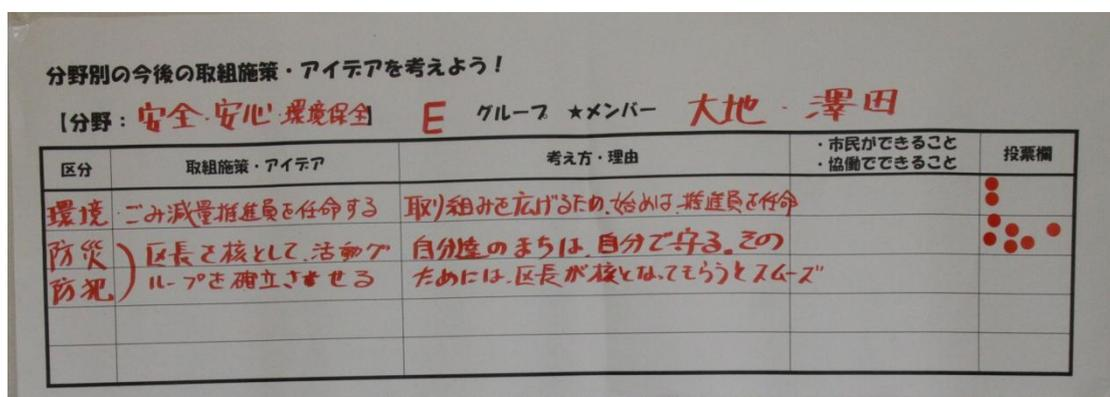 分野別の今後の取組施策・アイデアを考えよう!
【分野：安全・安心・環境保全】 E グループ ★メンバー 大地・澤田
区分 取組施策・アイデア 考え方・理由 ・市民ができること ・協働でできること 投票欄
環境 ・ごみ減量推進員を任命する 取り組みを広げるため、始めは、推進員を任命
防災 区長を核として、活動グ 自分達のまちは、自分で守る。その
防犯 ループを確立させる ためには、区長が核となってもらうとスムーズ